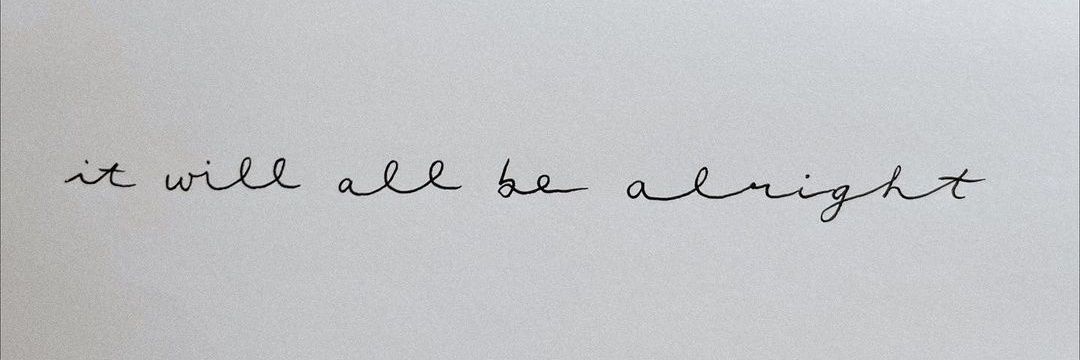 it will all be alright